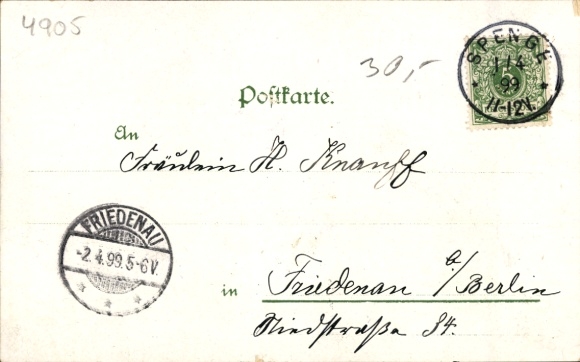 4905
30,-
SPENGE
1/4
99
11-12V.
5
Postkarte.
An
Fräulein H. Knauff
FRIEDENAU
-2.4.99.5-6V.
in Friedenau b/Berlin
Niedstraße 34.